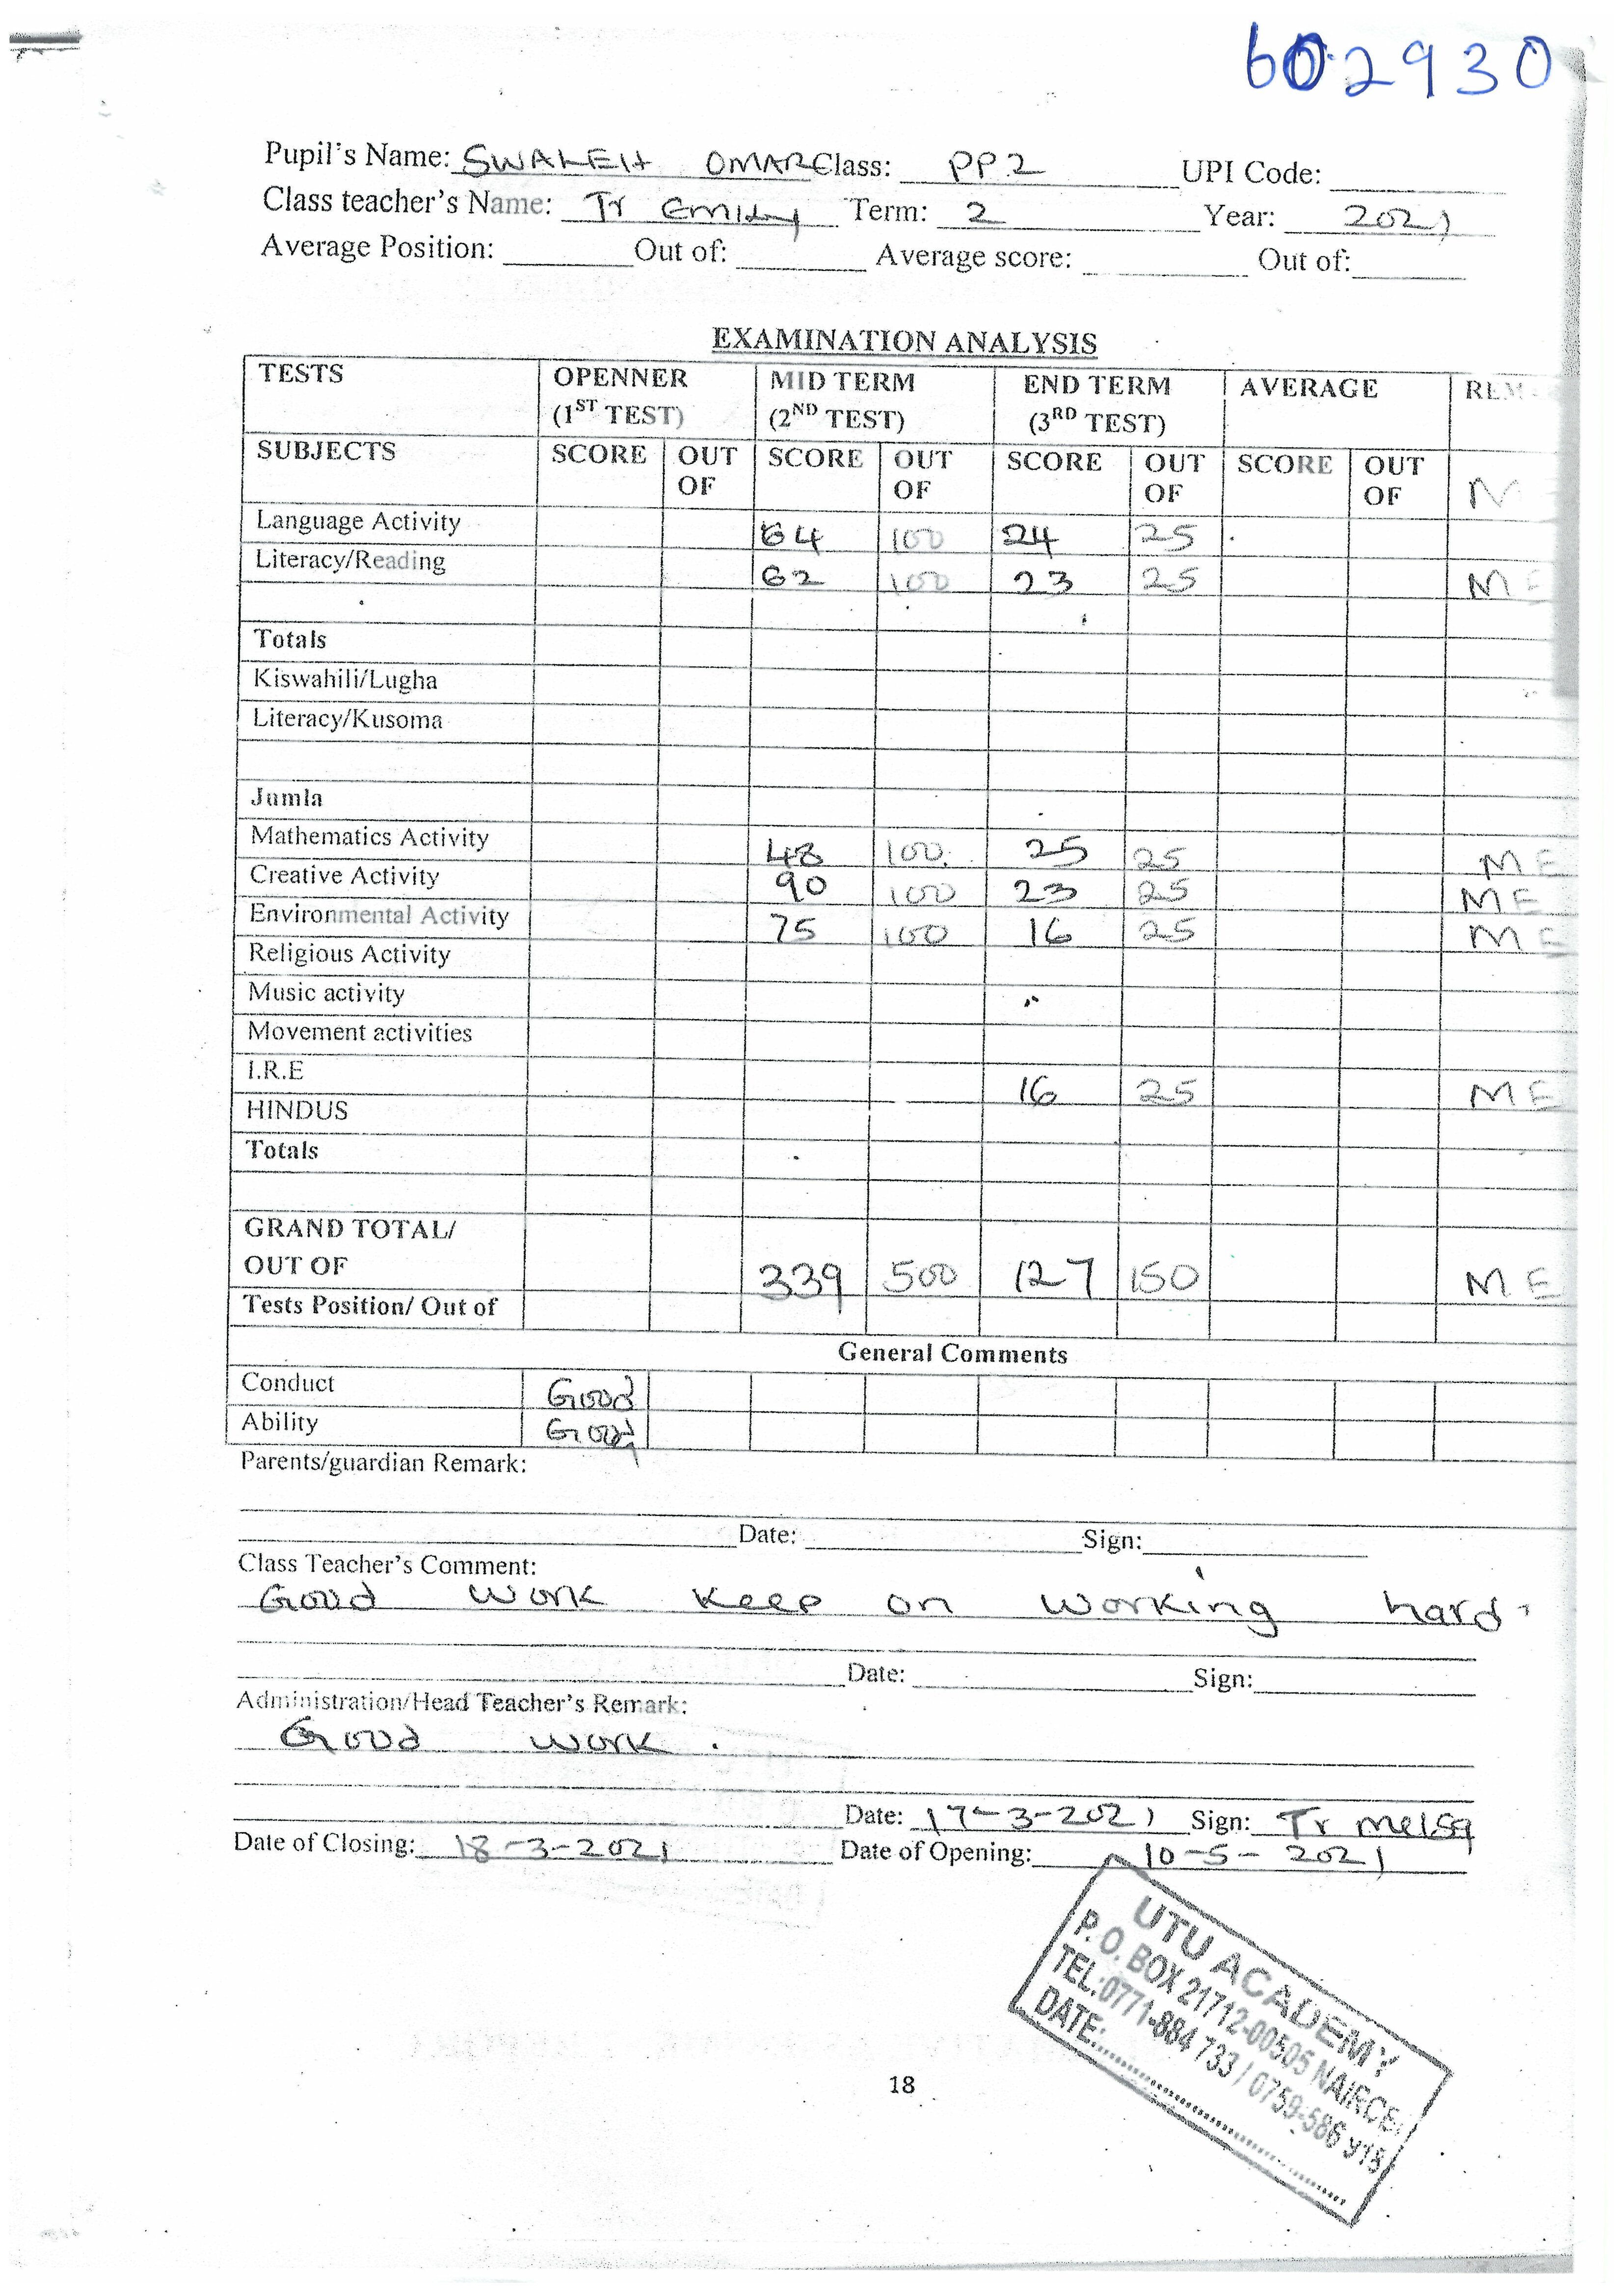 602930
Pupil's Name: SWALEH OMAR Class: PP2 UPI Code:
Class teacher's Name: Tr Emily Term: 2 Year: 2021
Average Position: Out of: Average score: Out of:
EXAMINATION ANALYSIS
TESTS OPENNER (1ST TEST) MID TERM (2ND TEST) END TERM (3RD TEST) AVERAGE
SUBJECTS SCORE OUT OF SCORE OUT OF SCORE OUT OF SCORE OUT OF
Language Activity 64 100 24 25
Literacy/Reading 62 100 23 25 ME
Totals
Kiswahili/Lugha
Literacy/Kusoma
Jumla
Mathematics Activity 48 100 25 25 ME
Creative Activity 90 100 23 25 ME
Environmental Activity 75 100 16 25 ME
Religious Activity
Music activity
Movement activities
I.R.E 16 25 ME
HINDUS
Totals
GRAND TOTAL/
OUT OF 339 500 127 150 ME
Tests Position/ Out of
General Comments
Conduct Good
Ability Good
Parents/guardian Remark:
Date: Sign:
Class Teacher's Comment:
Good work keep on working hard.
Date: Sign:
Administration/Head Teacher's Remark:
Good work.
Date: 17-3-2021 Sign: Tr
Date of Closing: 18-3-2021 Date of Opening: 10-5-2021
UTU ACADEMY
P. O. BOX 21712-00505
TEL:0771-884 733 / 0759-586
DATE:
18